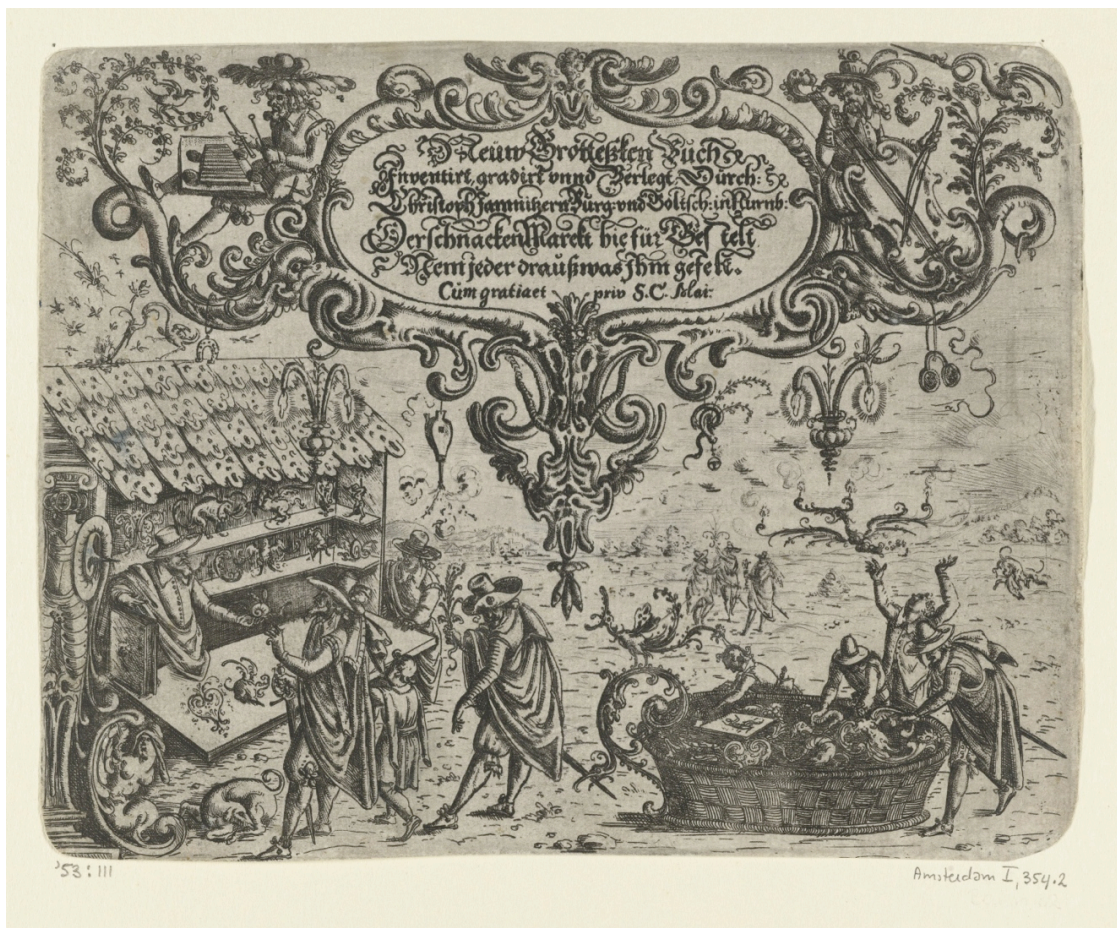 Neüw Grotteßken Buch
Inventirt, gradirt vnnd Verlegt Dürch:
Christoph Jamnitzern Bürg: vnd Goltsch: in Nürnb:
Der schnacken Marckt hie für Bestelt
Nem jeder drauß was Jhm gefelt.
Cüm gratia et priv S. C. Mai:
'53:111
Amsterdam I, 354.2